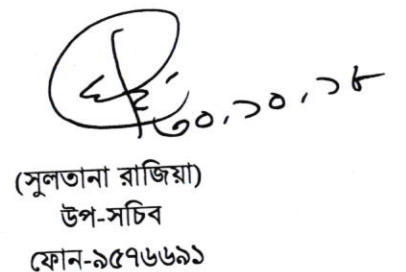 ৩০.১০.১৮
(সুলতানা রাজিয়া)
উপ-সচিব
ফোন-৯৫৭৬৬৯১